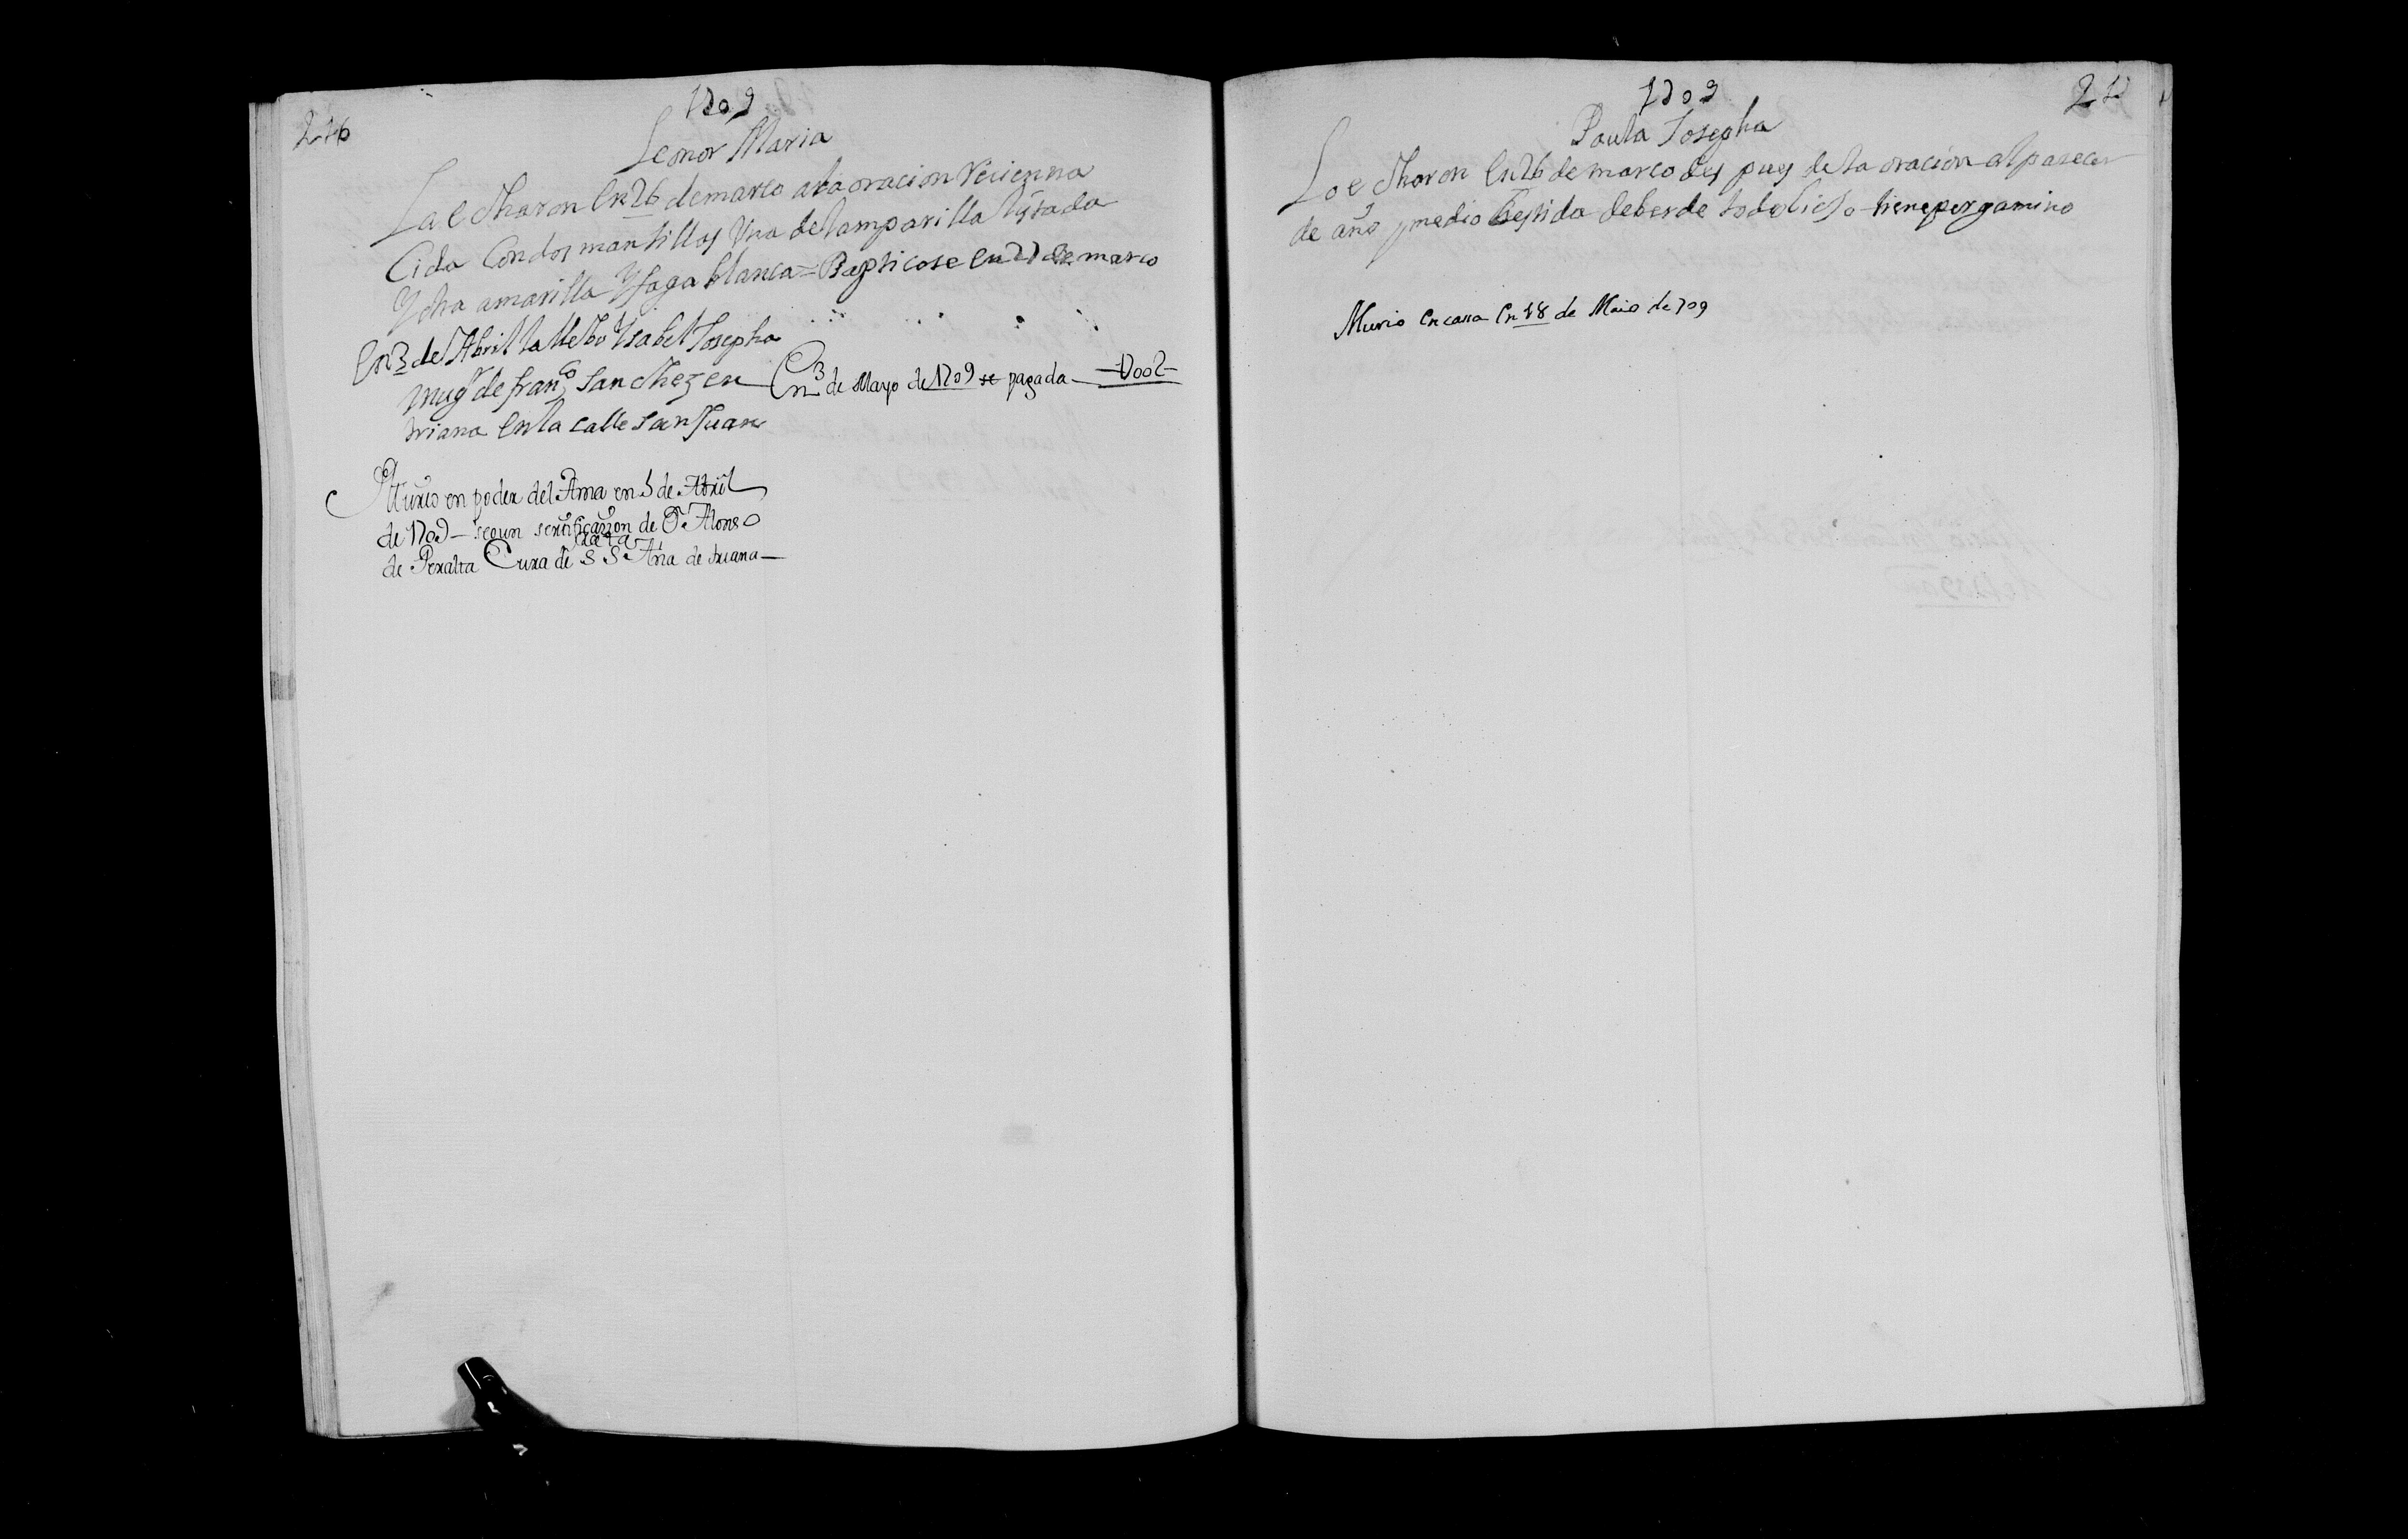 276
1709
Leonor Maria
La echaron en 26 de março a la oracion Recienna
cida con dos mantillas Una de lamparilla lystada
Y otra amarilla Y faga blanca = Bapticose en 27 de março
en 3 de Abril la llebo Ysabel Josepha
mugr de franco Sanchez en
triana en la calle San Juan
En 3 de Mayo de 1709 se pagada — U002
Murio en poder del Ama en 5 de Abril
de 1709 — segun sertificazon de Dn Alonso
de Peralta Cura de SSta Ana de triana —
1709
277
Paula Josepha
La echaron en 26 de março despues de la oracion al parecer
de año y medio bestida de berde todo biejo tiene pergamino
Murio en casa en 18 de Maio de 709